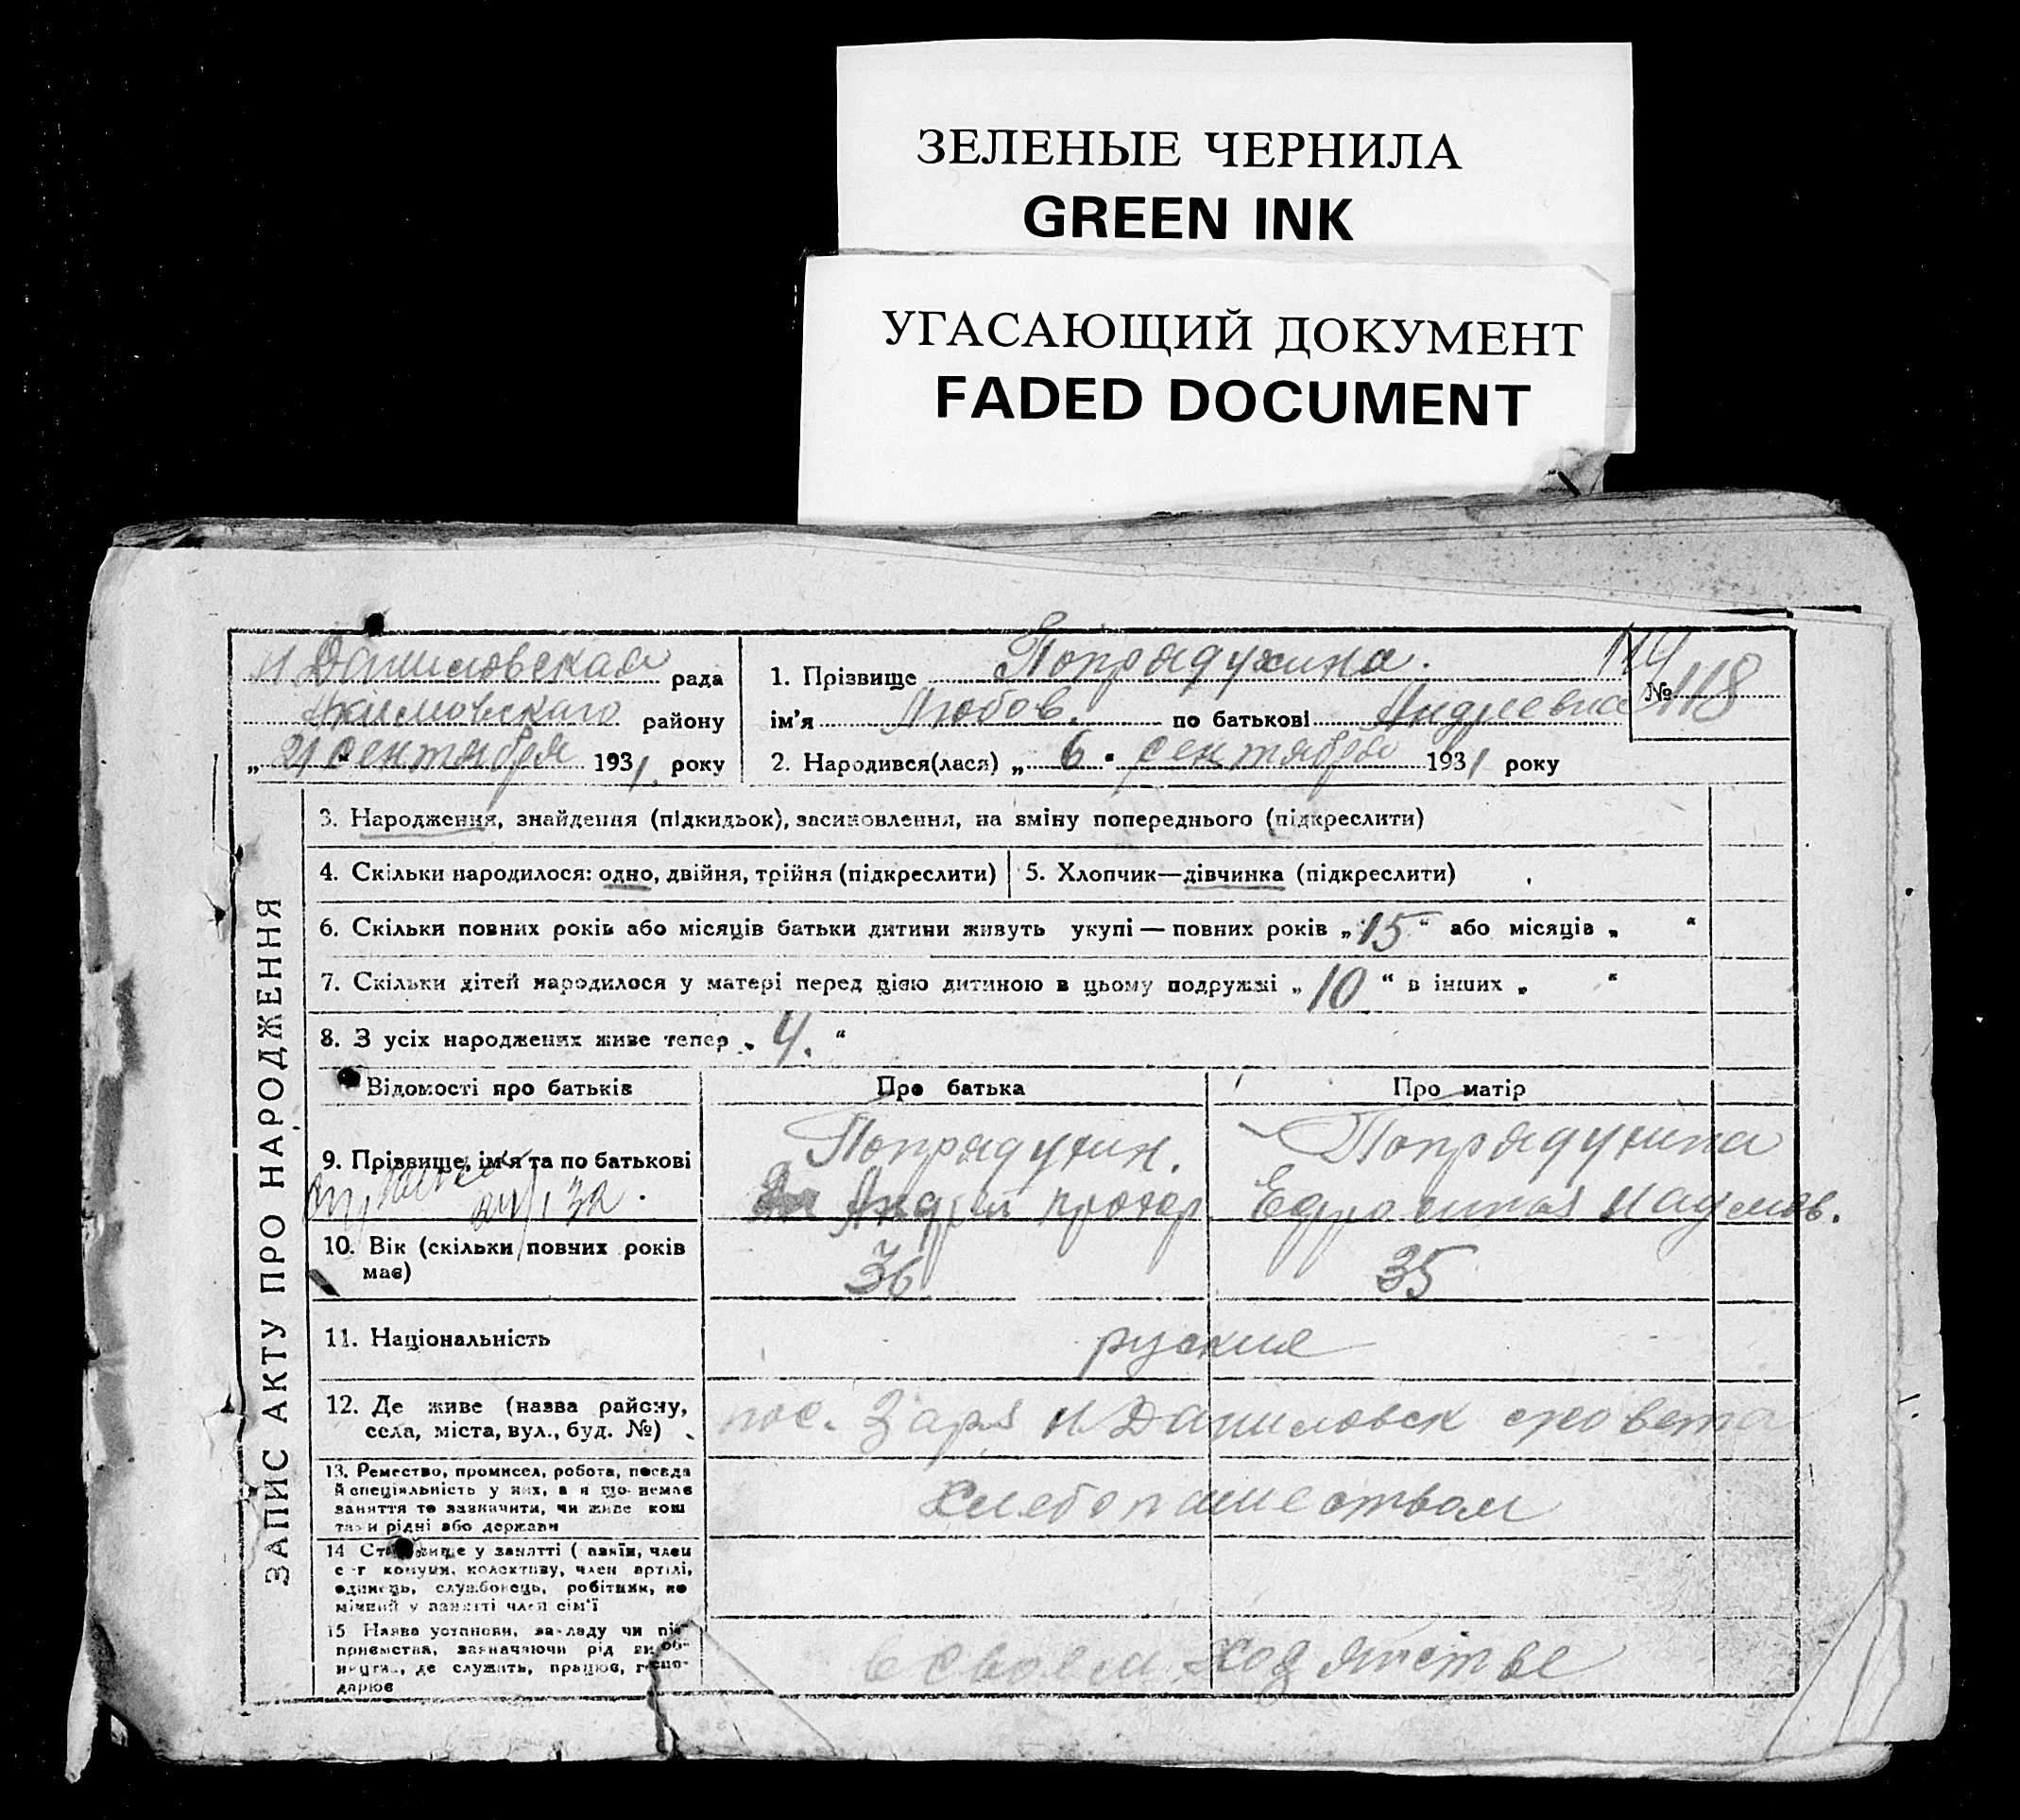 ЗЕЛЕНЫЕ ЧЕРНИЛА
GREEN INK
УГАСАЮЩИЙ ДОКУМЕНТ
FADED DOCUMENT
Н Даниловская рада
района району
„21 сентября 1931. року
1. Прізвище Попрядухина.
ім’я Любов. по батькові Андреевна
114
№ 118
2. Народився(лася) „6“ сентября 1931 року
ЗАПИС АКТУ ПРО НАРОДЖЕННЯ
3. Народження, знайдення (підкидьок), засиновлення, на зміну попереднього (підкреслити)
4. Скільки народилося: одно, двійня, трійня (підкреслити)
5. Хлопчик—дівчинка (підкреслити)
6. Скільки повних років або місяців батьки дитини живуть укупі — повних років „15“ або місяців „ “
7. Скільки дітей народилося у матері перед цією дитиною в цьому подружжі „10“ в інших „ “
8. З усіх народжених живе тепер „4.“
Відомості про батьків Про батька Про матір
9. Прізвище, ім’я та по батькові
Попрядухин. Попрядухина
Андрей Прохор Ефросинья Наумов.
10. Вік (скільки повних років має) 36 35
11. Національність руские
12. Де живе (назва району, села, міста, вул., буд. №) пос. Заря Н Даниловск совета
13. Ремество, промисел, робота, посада
й спеціяльність у них, а я що немає
заняття то зазначити, чи живе кош
тами рідні або держави
Хлебопашеством
14 Становище у занятті (хазяїн, член
с-г комуни, колективу, член артілі,
одинець, службовець, робітник, по
мічний у занятті член сім’ї
15 Назва установи, закладу чи під-
приємства, зазначаючи рід вироб-
ництва, де служить, працює, госпо-
дарює
в своем хозяйстве